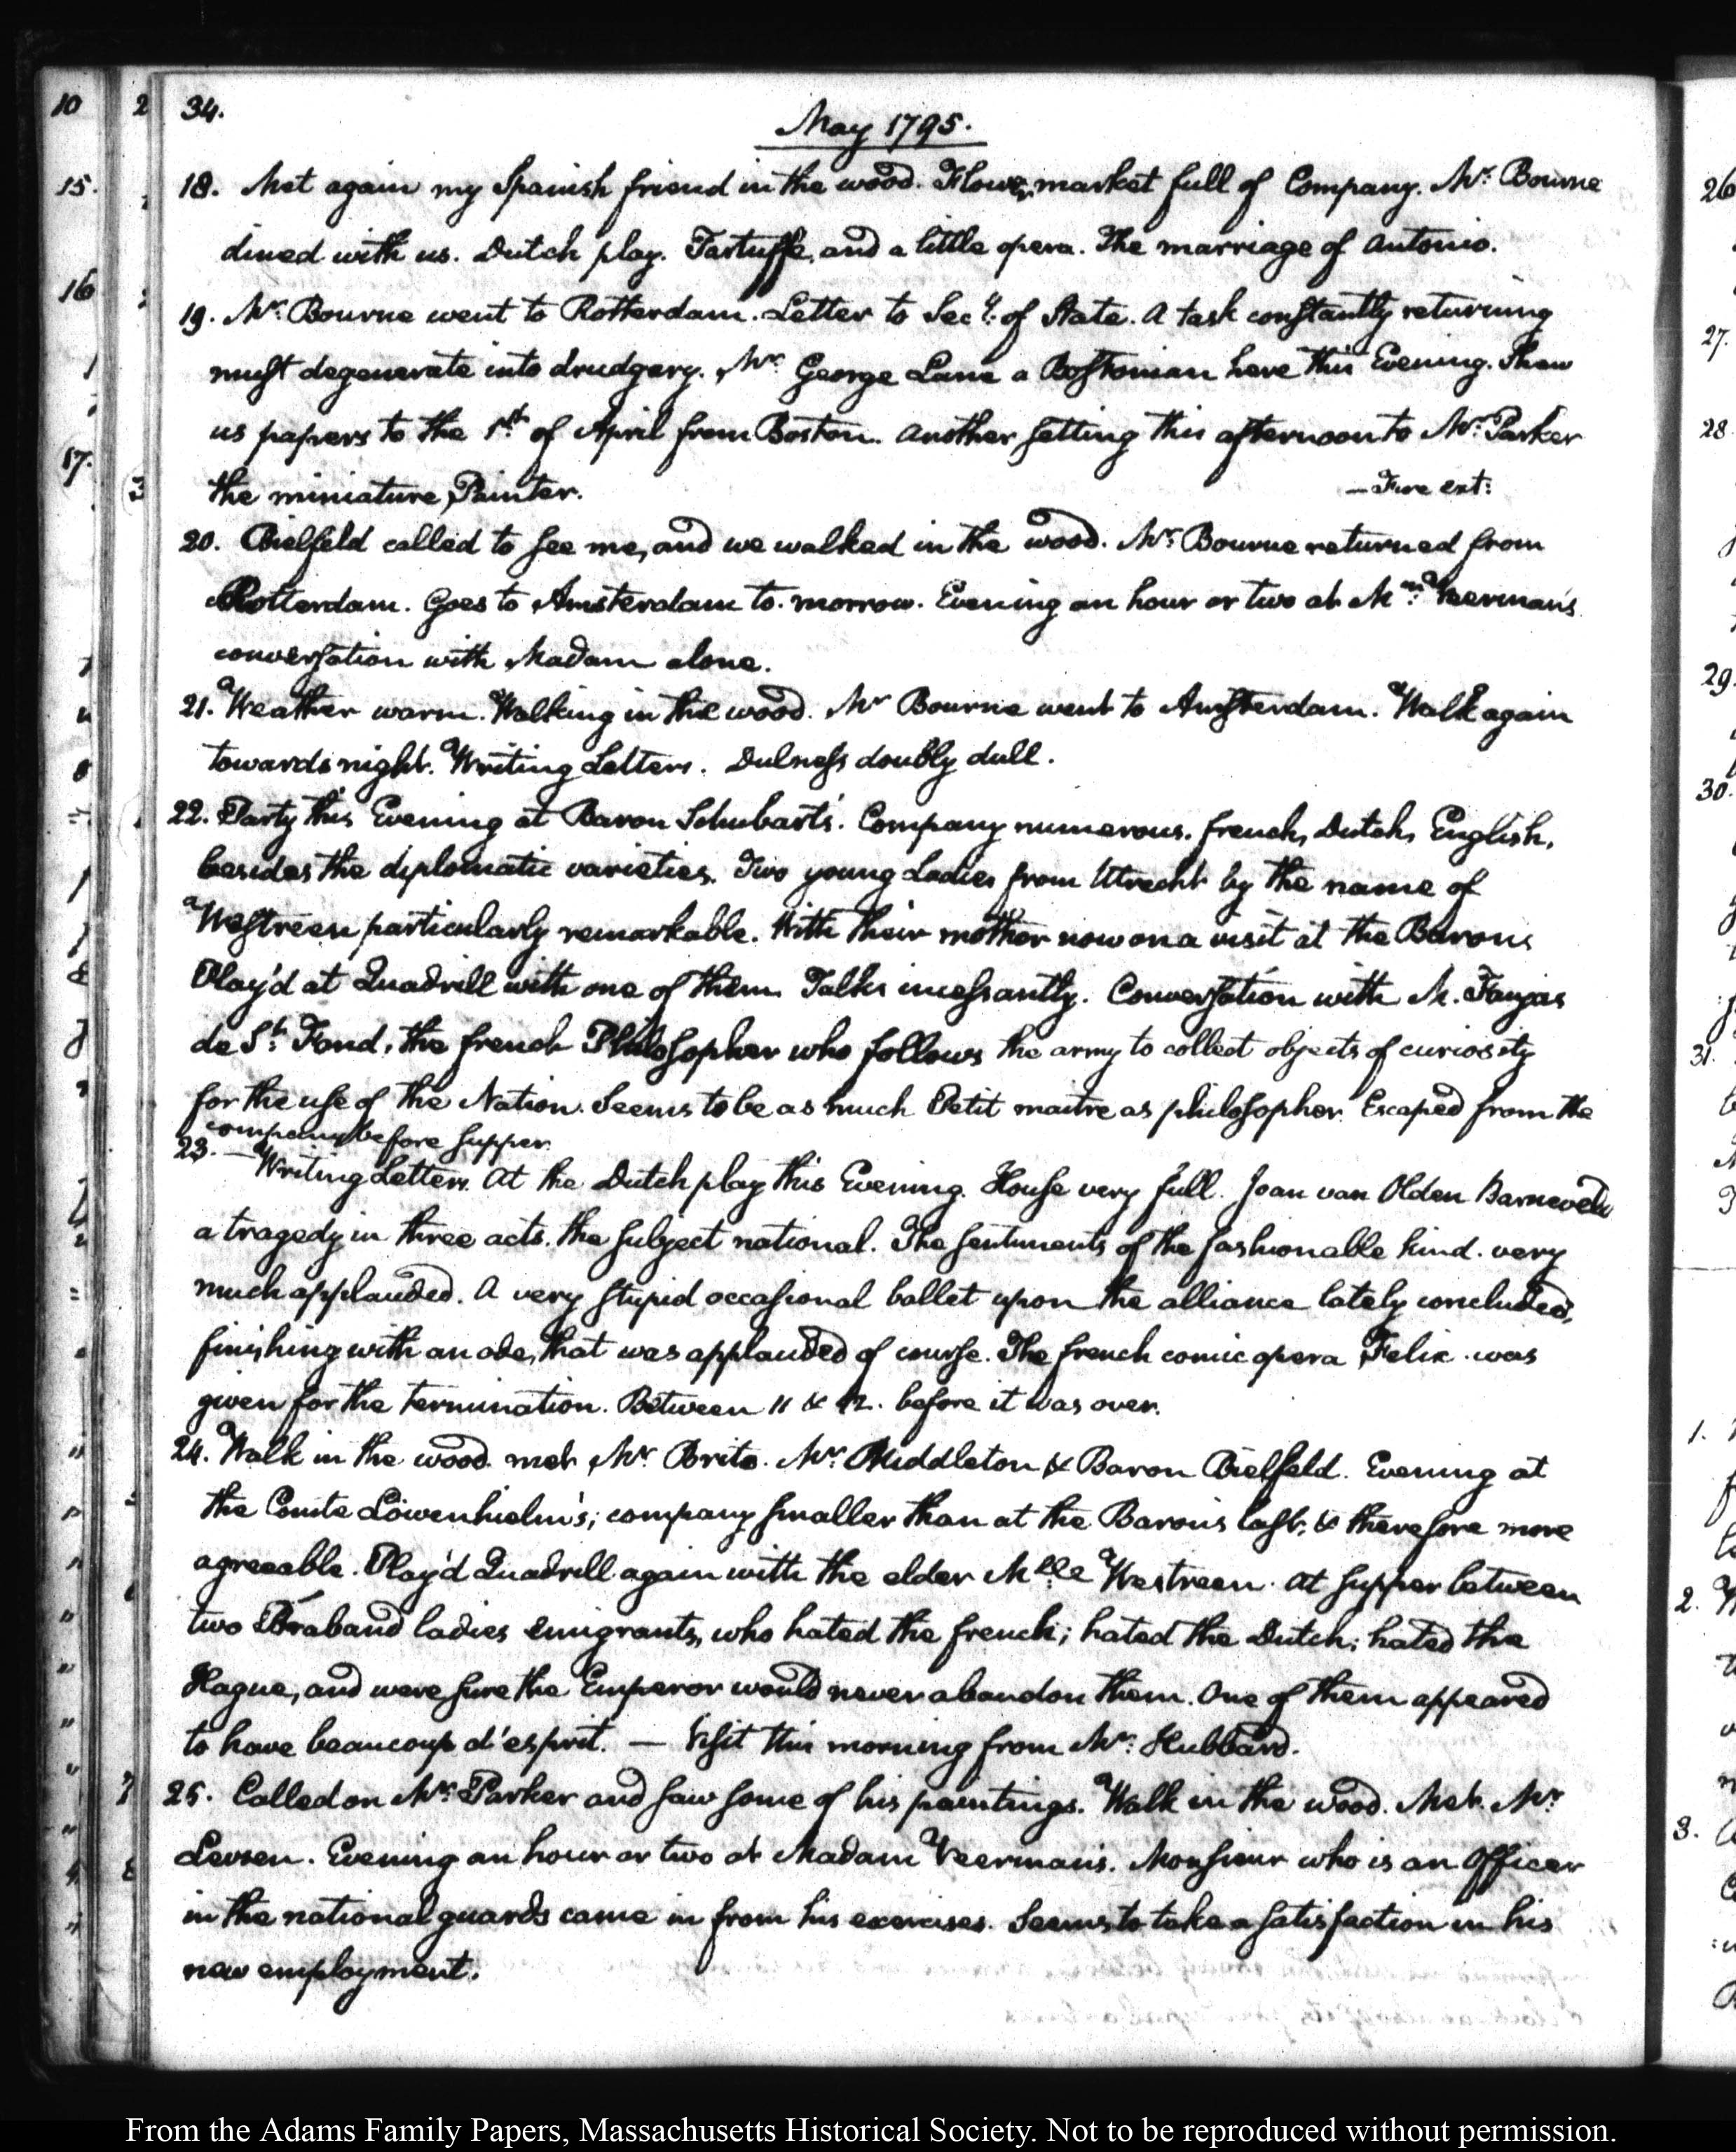 34.
May 1795.
18. Met again my Spanish friend in the wood. Flower, market full of Company. Mr. Bourne
dined with us. Dutch play. Tartuffe, and a little opera. The marriage of Antonio.
19. Mr. Bourne went to Rotterdam. Letter to Secy. of State. A task constantly returning
must degenerate into drudgery. Mr. George Lane a Bostonian here this Evening. Shew
us papers to the 1st. of April from Boston. Another setting this afternoon to Mr. Parker
the miniature Painter. — Fire ext:
20. Bielfeld called to see me, and we walked in the wood. Mr. Bourne returned from
Rotterdam. Goes to Amsterdam to-morrow. Evening an hour or two at Mr. Veerman's
conversation with Madam alone.
21. Weather warm. Walking in the wood. Mr Bourne went to Amsterdam. Walk again
towards night. Writing Letters. Dulness doubly dull.
22. Party this Evening at Baron Schubart's. Company numerous. french, Dutch, English,
besides the diplomatic varieties. Two young Ladies from Utrecht by the name of
Westreen particularly remarkable. With their mother now on a visit at the Barons
Play'd at Quadrill with one of them. Talks incessantly. Conversation with M. Faujas
de St. Fond, the french Philosopher who follows the army to collect objects of curiosity
for the use of the Nation. Seems to be as much Petit maitre as philosopher. Escaped from the
company before supper.
23. — Writing Letters. At the Dutch play this Evening. House very full. Joan van Olden Barneveld
a tragedy in three acts. the subject national. The sentiments of the fashionable kind. very
much applauded. A very stupid occasional ballet upon the alliance lately concluded,
finishing with an ode, that was applauded of course. The french comic opera Felix. was
given for the termination. Between 11 & 12. before it was over.
24. Walk in the wood. met Mr. Brito. Mr. Middleton & Baron Bielfeld. Evening at
the Comte Löwenhielm's; company smaller than at the Baron's last, & therefore more
agreeable. Play'd Quadrill again with the elder Mlle. Westreen. At supper between
two Braband ladies emigrants, who hated the french; hated the Dutch; hated the
Hague, and were sure the Emperor would never abandon them. One of them appeared
to have beaucoup d'esprit. — Visit this morning from Mr. Hubbard.
25. Called on Mr. Parker and saw some of his paintings. Walk in the wood. Met. Mr.
Levsen. Evening an hour or two at Madam Veerman's. Monsieur who is an Officer
in the national guards came in from his exercises. Seems to take a satisfaction in his
new employment.
From the Adams Family Papers, Massachusetts Historical Society. Not to be reproduced without permission.